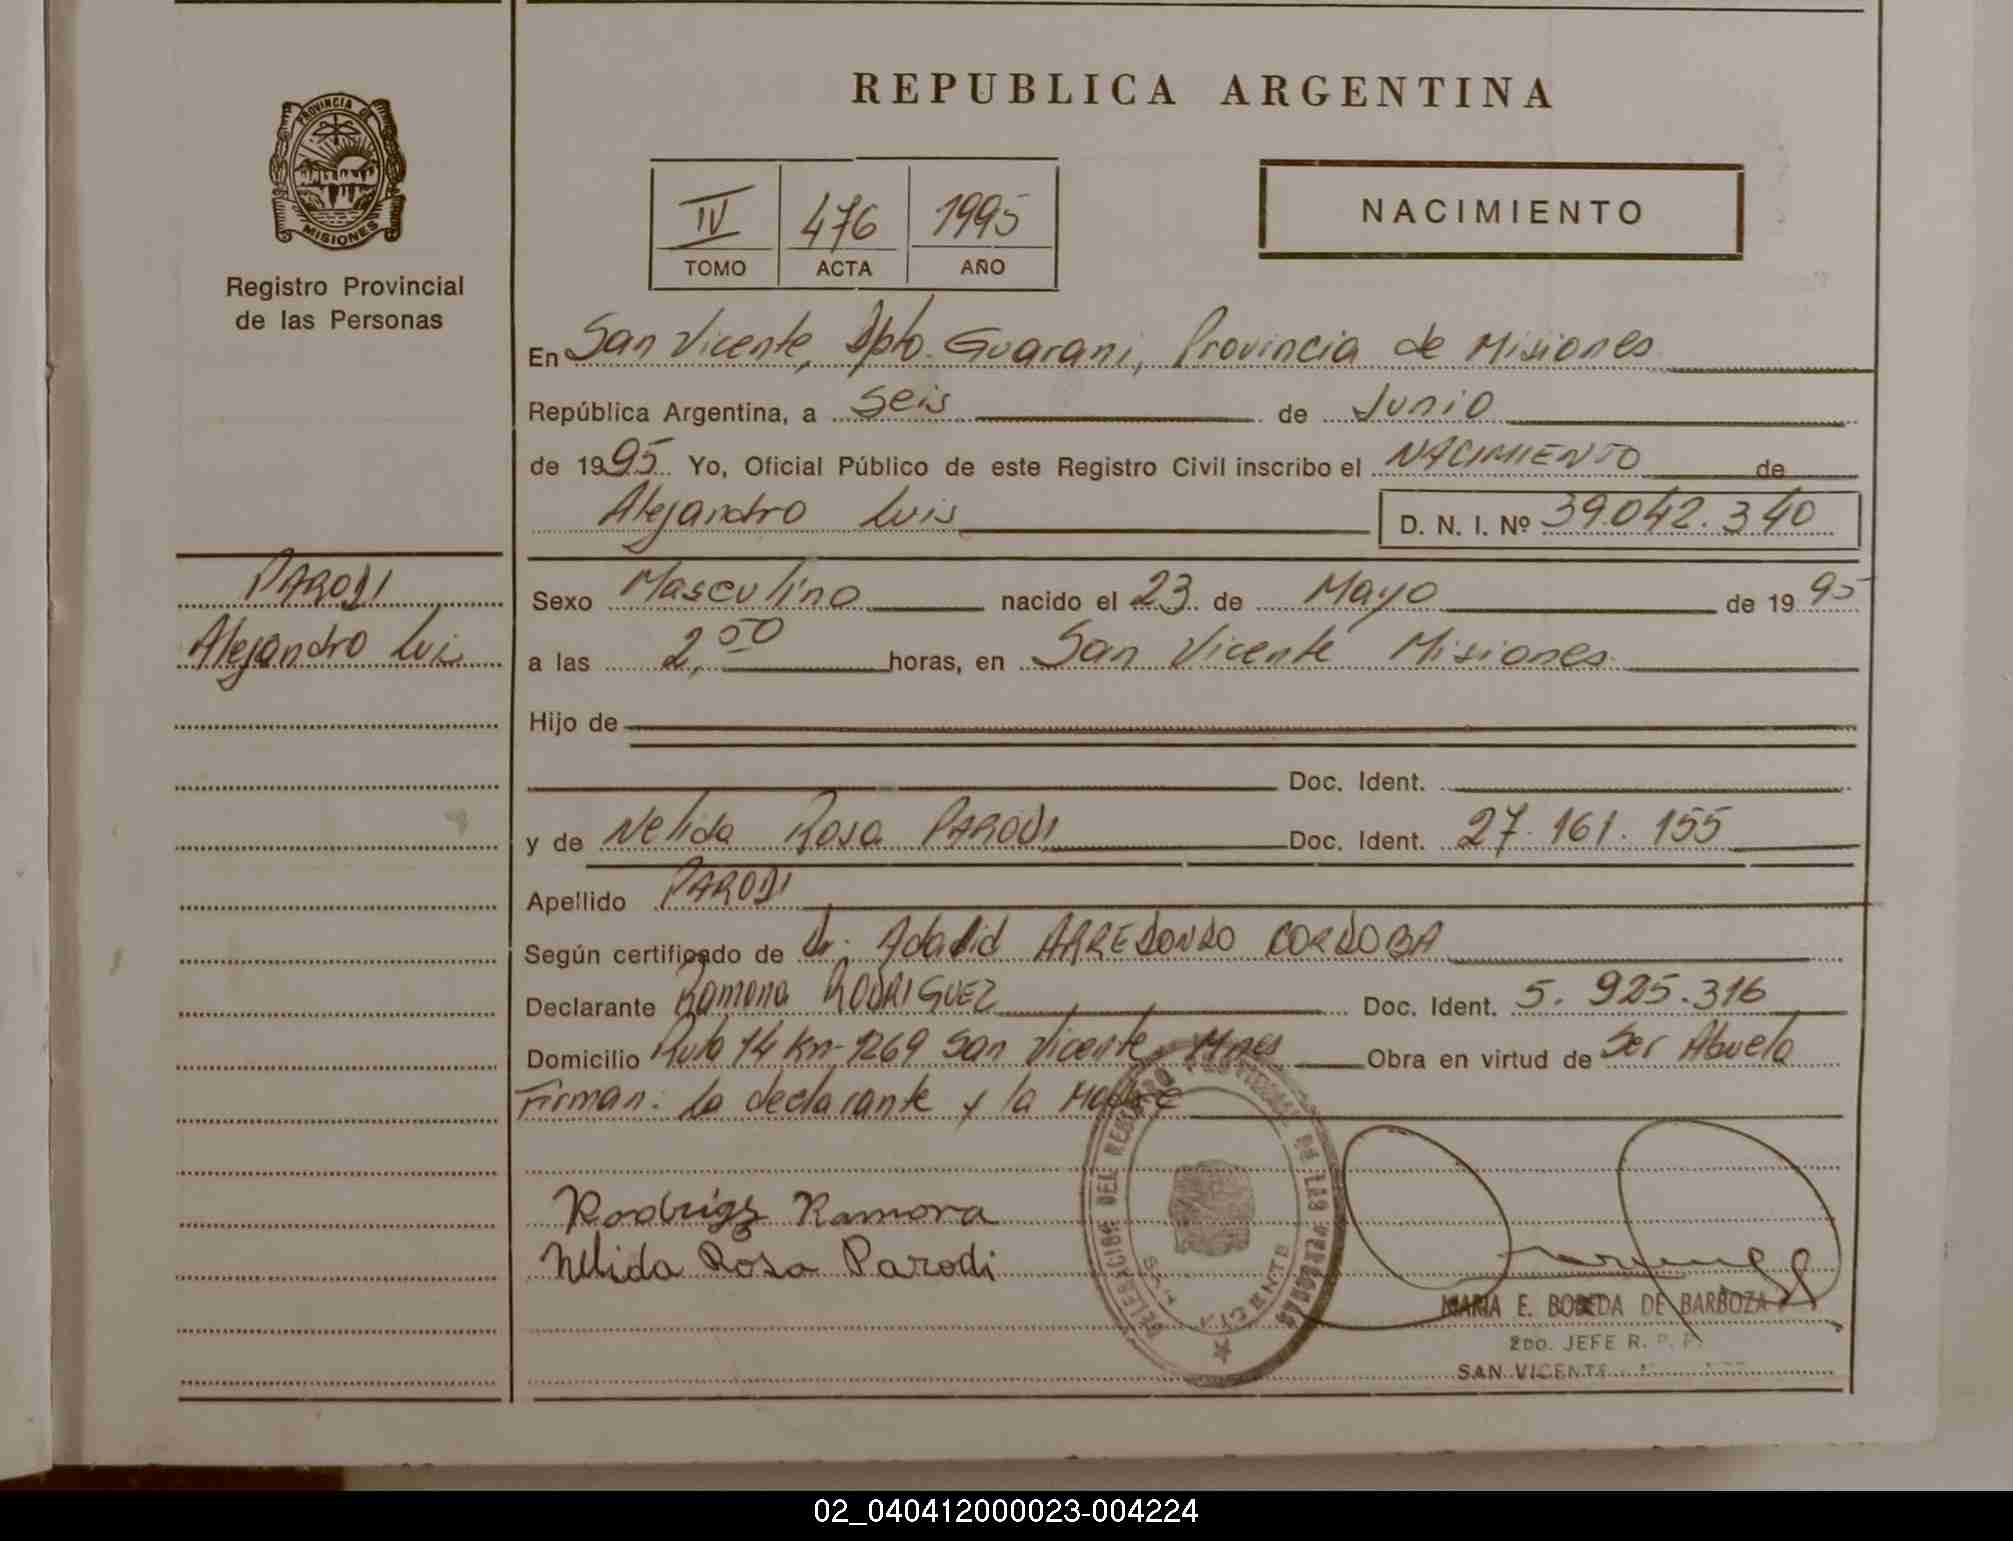 REPUBLICA ARGENTINA
PROVINCIA DE
MISIONES
Registro Provincial
de las Personas
IV 476 1995
TOMO ACTA AÑO
NACIMIENTO
En San Vicente, Dpto. Guarani, Provincia de Misiones
República Argentina, a Seis de Junio
de 1995 Yo, Oficial Público de este Registro Civil inscribo el NACIMIENTO de
Alejandro Luis D. N. I. Nº 39.042.340
PARODI
Alejandro Luis
Sexo Masculino nacido el 23 de Mayo de 1995
a las 2,50 horas, en San Vicente Misiones
Hijo de
Doc. Ident.
y de Nelida Rosa PARODI Doc. Ident. 27.161.155
Apellido PARODI
Según certificado de Dr. Adalid ARREDONDO CORDOBA
Declarante Ramona RODRIGUEZ Doc. Ident. 5.925.316
Domicilio Ruta 14 Km-1269 San Vicente, Mnes Obra en virtud de Ser Abuela
Firman: la declarante y la Madre
Rodrigz Ramona
Nelida Rosa Parodi
DELEGACION DEL REGISTRO PROVINCIAL DE LAS PERSONAS
SAN VICENTE
MARIA E. BOBEDA DE BARBOZA
2DO. JEFE R. P. P.
SAN VICENTE
02_040412000023-004224